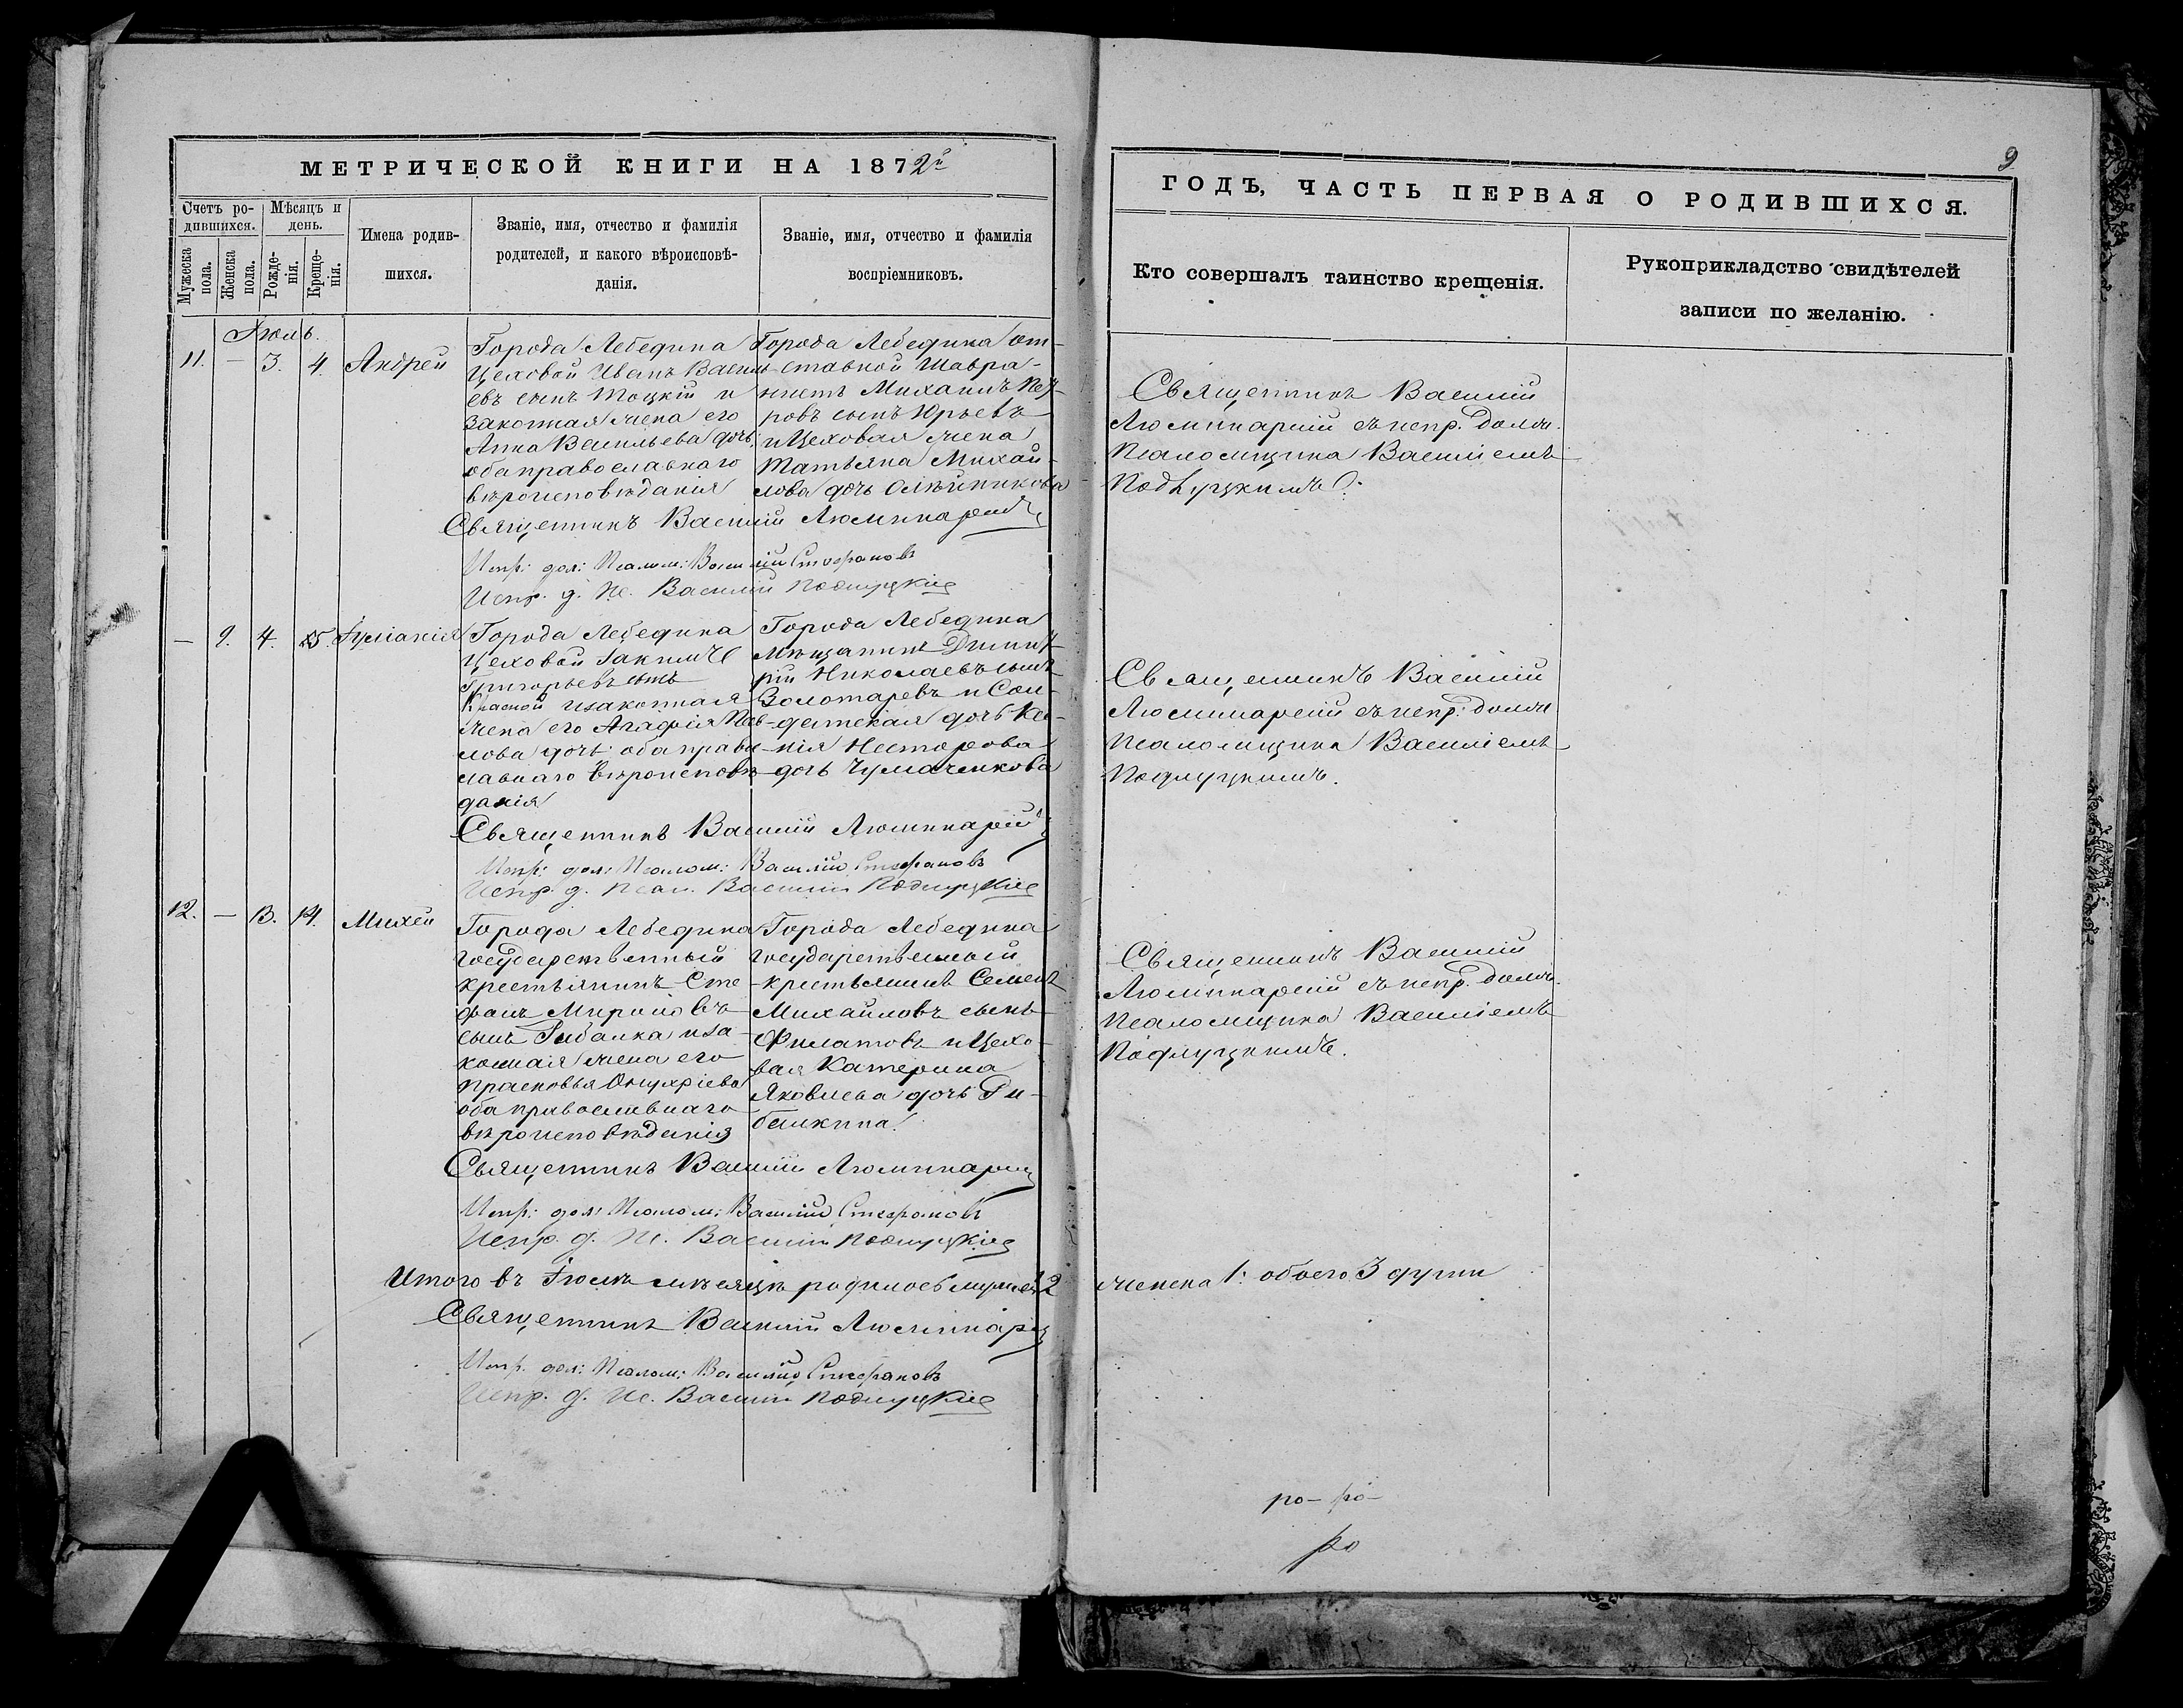 МЕТРИЧЕСКОЙ КНИГИ НА 1872й
Счетъ ро-
дившихся.
Мѣсяцъ и
день.
Мужеска
пола.
Женска
пола.
Рожде-
нія.
Креще-
нія.
Имена родив-
шихся.
Званіе, имя, отчество и фамилія
родителей, и какого вѣроисповѣ-
данія.
Званіе, имя, отчество и фамилія
воспріемниковъ.
Іюль.
11. — 3. 4. Андрей
Города Лебедина
Цеховой Иванъ Василь-
евъ сынъ Тоцкій и
законная жена его
Анна Васильева дочь
оба православнаго
вѣроисповѣданія
Города Лебедина от-
ставной
Михаилъ Пет-
ровъ сынъ Юрьевъ
и Цеховая жена
Татьяна Михай-
лова дочь Олѣйникова
Священникъ Василій Люминарскій
Испр: дол: Псалом: Василій Стефановъ
Испр. д. Пс. Василій Подлуцкій
— 9. 4. 5. Іуліанія
Города Лебедина
Цеховой Іакимъ
Григорьевъ сынъ
Красной и законная
жена его Агафія Пав-
лова дочь оба правос-
лавнаго вѣроисповѣ-
данія
Города Лебедина
Мѣщанинъ Димит-
рій Николаевъ сынъ
Золотаревъ и Сол-
датская дочь Ксе-
нія Несторова
дочь Чумаченкова
Священникъ Василій Люминарскій
Испр: дол: Псалом: Василій Стефановъ
Испр. д. Псал. Василій Подлуцкій
12. — 13. 14. Михей
Города Лебедина
Государственный
крестьянинъ Сте-
фанъ Мироновъ
сынъ Рибалка и за-
конная жена его
Прасковья Онуфріева
оба православнаго
вѣроисповѣданія
Города Лебедина
Государственный
крестьянинъ Семенъ
Михайловъ сынъ
Филатовъ и Цехо-
вая Катерина
Яковлева дочь Ри-
балкина
Священникъ Василій Люминарскій
Испр: дол: Псалом: Василій Стефановъ
Испр. д. Пс. Василій Подлуцкій
Итого въ Іюлѣ мѣсяцѣ родилось мужеска 2
Священникъ Василій Люминарскій
Испр. дол: Псалом: Василій Стефановъ
Испр. д. Пс. Василій Подлуцкій
9
ГОДЪ, ЧАСТЬ ПЕРВАЯ О РОДИВШИХСЯ.
Кто совершалъ таинство крещенія.
Рукоприкладство свидѣтелей
записи по желанію.
Священникъ Василій
Люминарскій съ испр. должн.
Псаломщика Василіемъ
Подлуцкимъ.
Священникъ Василій
Люминарскій съ испр. должн
Псаломщика Василіемъ
Подлуцкимъ.
Священникъ Василій
Люминарскій съ испр. должн.
Псаломщика Василіемъ
Подлуцкимъ.
женска 1: обоего 3 души
ро- ро-
ро